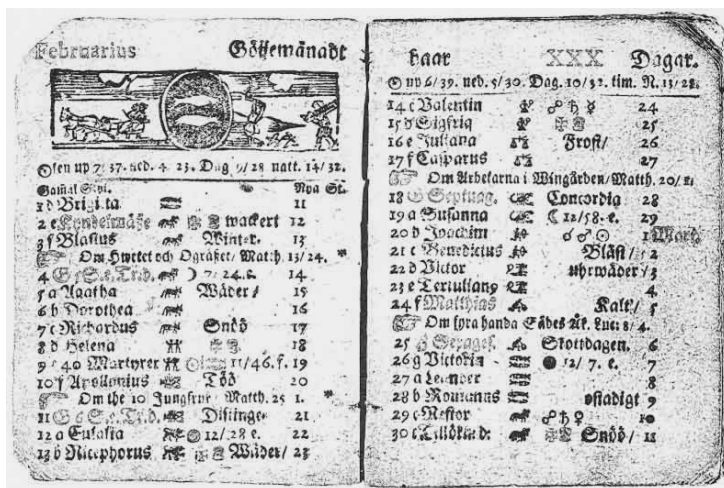 Februarius Göijemånadt
Solen up 7/37. ned. 4 23. Dag 9/28 natt. 14/32.
Gamal Styl. Nya St.
1 d Brigitta 11
2 e Kyndelmässe wackert 12
3 f Blasius Winter. 13
Om Hwetet och Ogräset/ Matth. 13/24.
4 G 5 S. e. Tr. d. 7/24. e. 14
5 a Agatha Wäder/ 15
6 b Dorothea 16
7 c Richardus Snöö 17
8 d Helena 18
9 e 40 Martyrer 11/46. f. 19
10 f Apollonius Töö 20
Om the 10 Jungfrur Matth. 25 1.
11 G 6 S. e. Tr. d. Distinge 21
12 a Eulalia 12/28 e. 22
13 b Nicephorus Wäder/ 23
haar XXX Dagar.
up 6/39. ned. 5/30. Dag. 10/32. tim. N. 13/28.
14 c Valentin ☍ ♄ ☿ 24
15 d Sigfrid 25
16 e Juliana Frost/ 26
17 f Casparus 27
Om Arbetarna i Wingården/ Matth. 20/1.
18 G Septuag. Concordia 28
19 a Susanna ☾ 12/58. e. 29
20 b Joachim ☌ ♂ ☉ 1 Mart.
21 c Benedictus Blåst/ 2
22 d Victor uhrwäder/ 3
23 e Tertulianq 4
24 f Matthias Kalt/ 5
Om fyrahanda Sädes Åk. Luc: 8/4.
25 G Sexages. Skottdagen. 6
26 g Victorin 12/7. e. 7
27 a Leander 8
28 b Romanus ostadigt 9
29 c Nestor ☍ ♄ ♀ 10
30 c Snöö/ 11